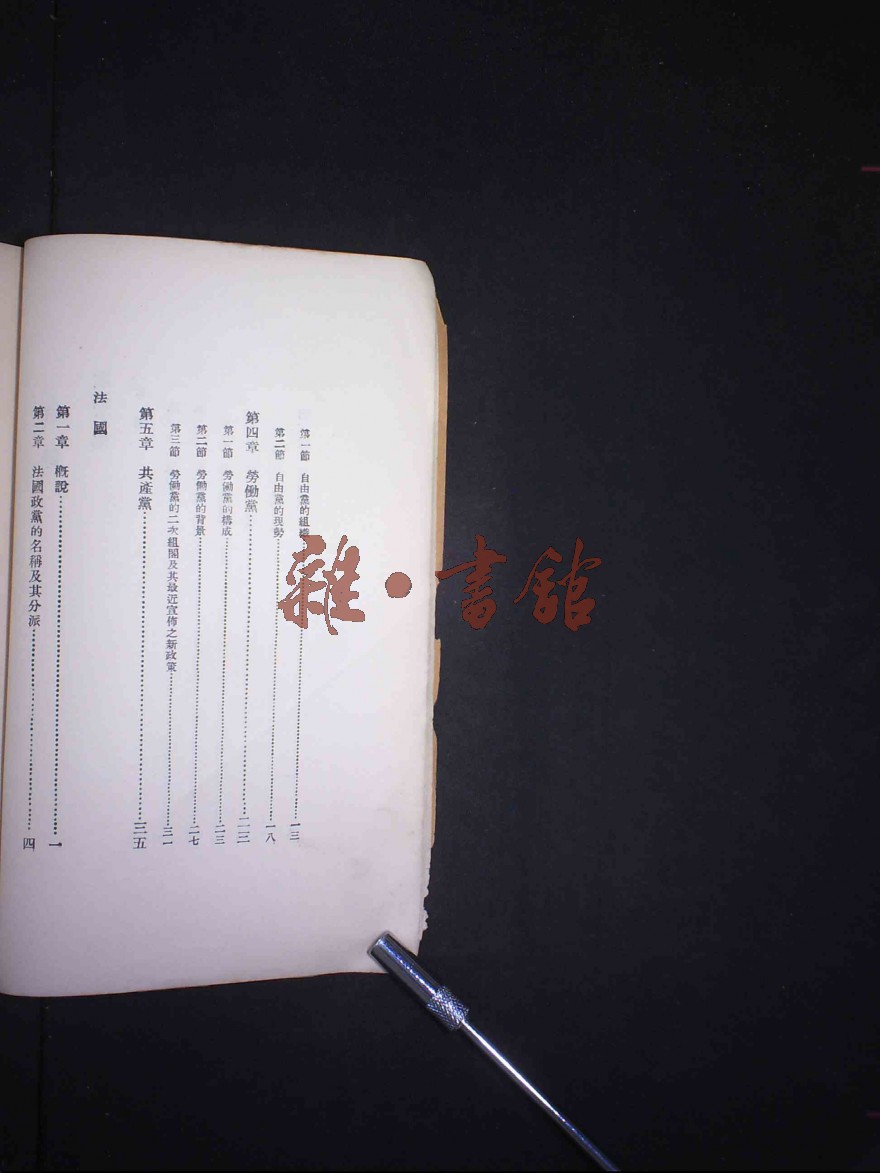 第一節　自由黨的組織……一三
第二節　自由黨的現勢……一八
第四章　勞働黨……二三
第一節　勞働黨的構成……二三
第二節　勞働黨的背景……二七
第三節　勞働黨的二次組閣及其最近宣佈之新政策……三一
第五章　共產黨……三五
法國
第一章　概說……一
第二章　法國政黨的名稱及其分派……四
雜·書館